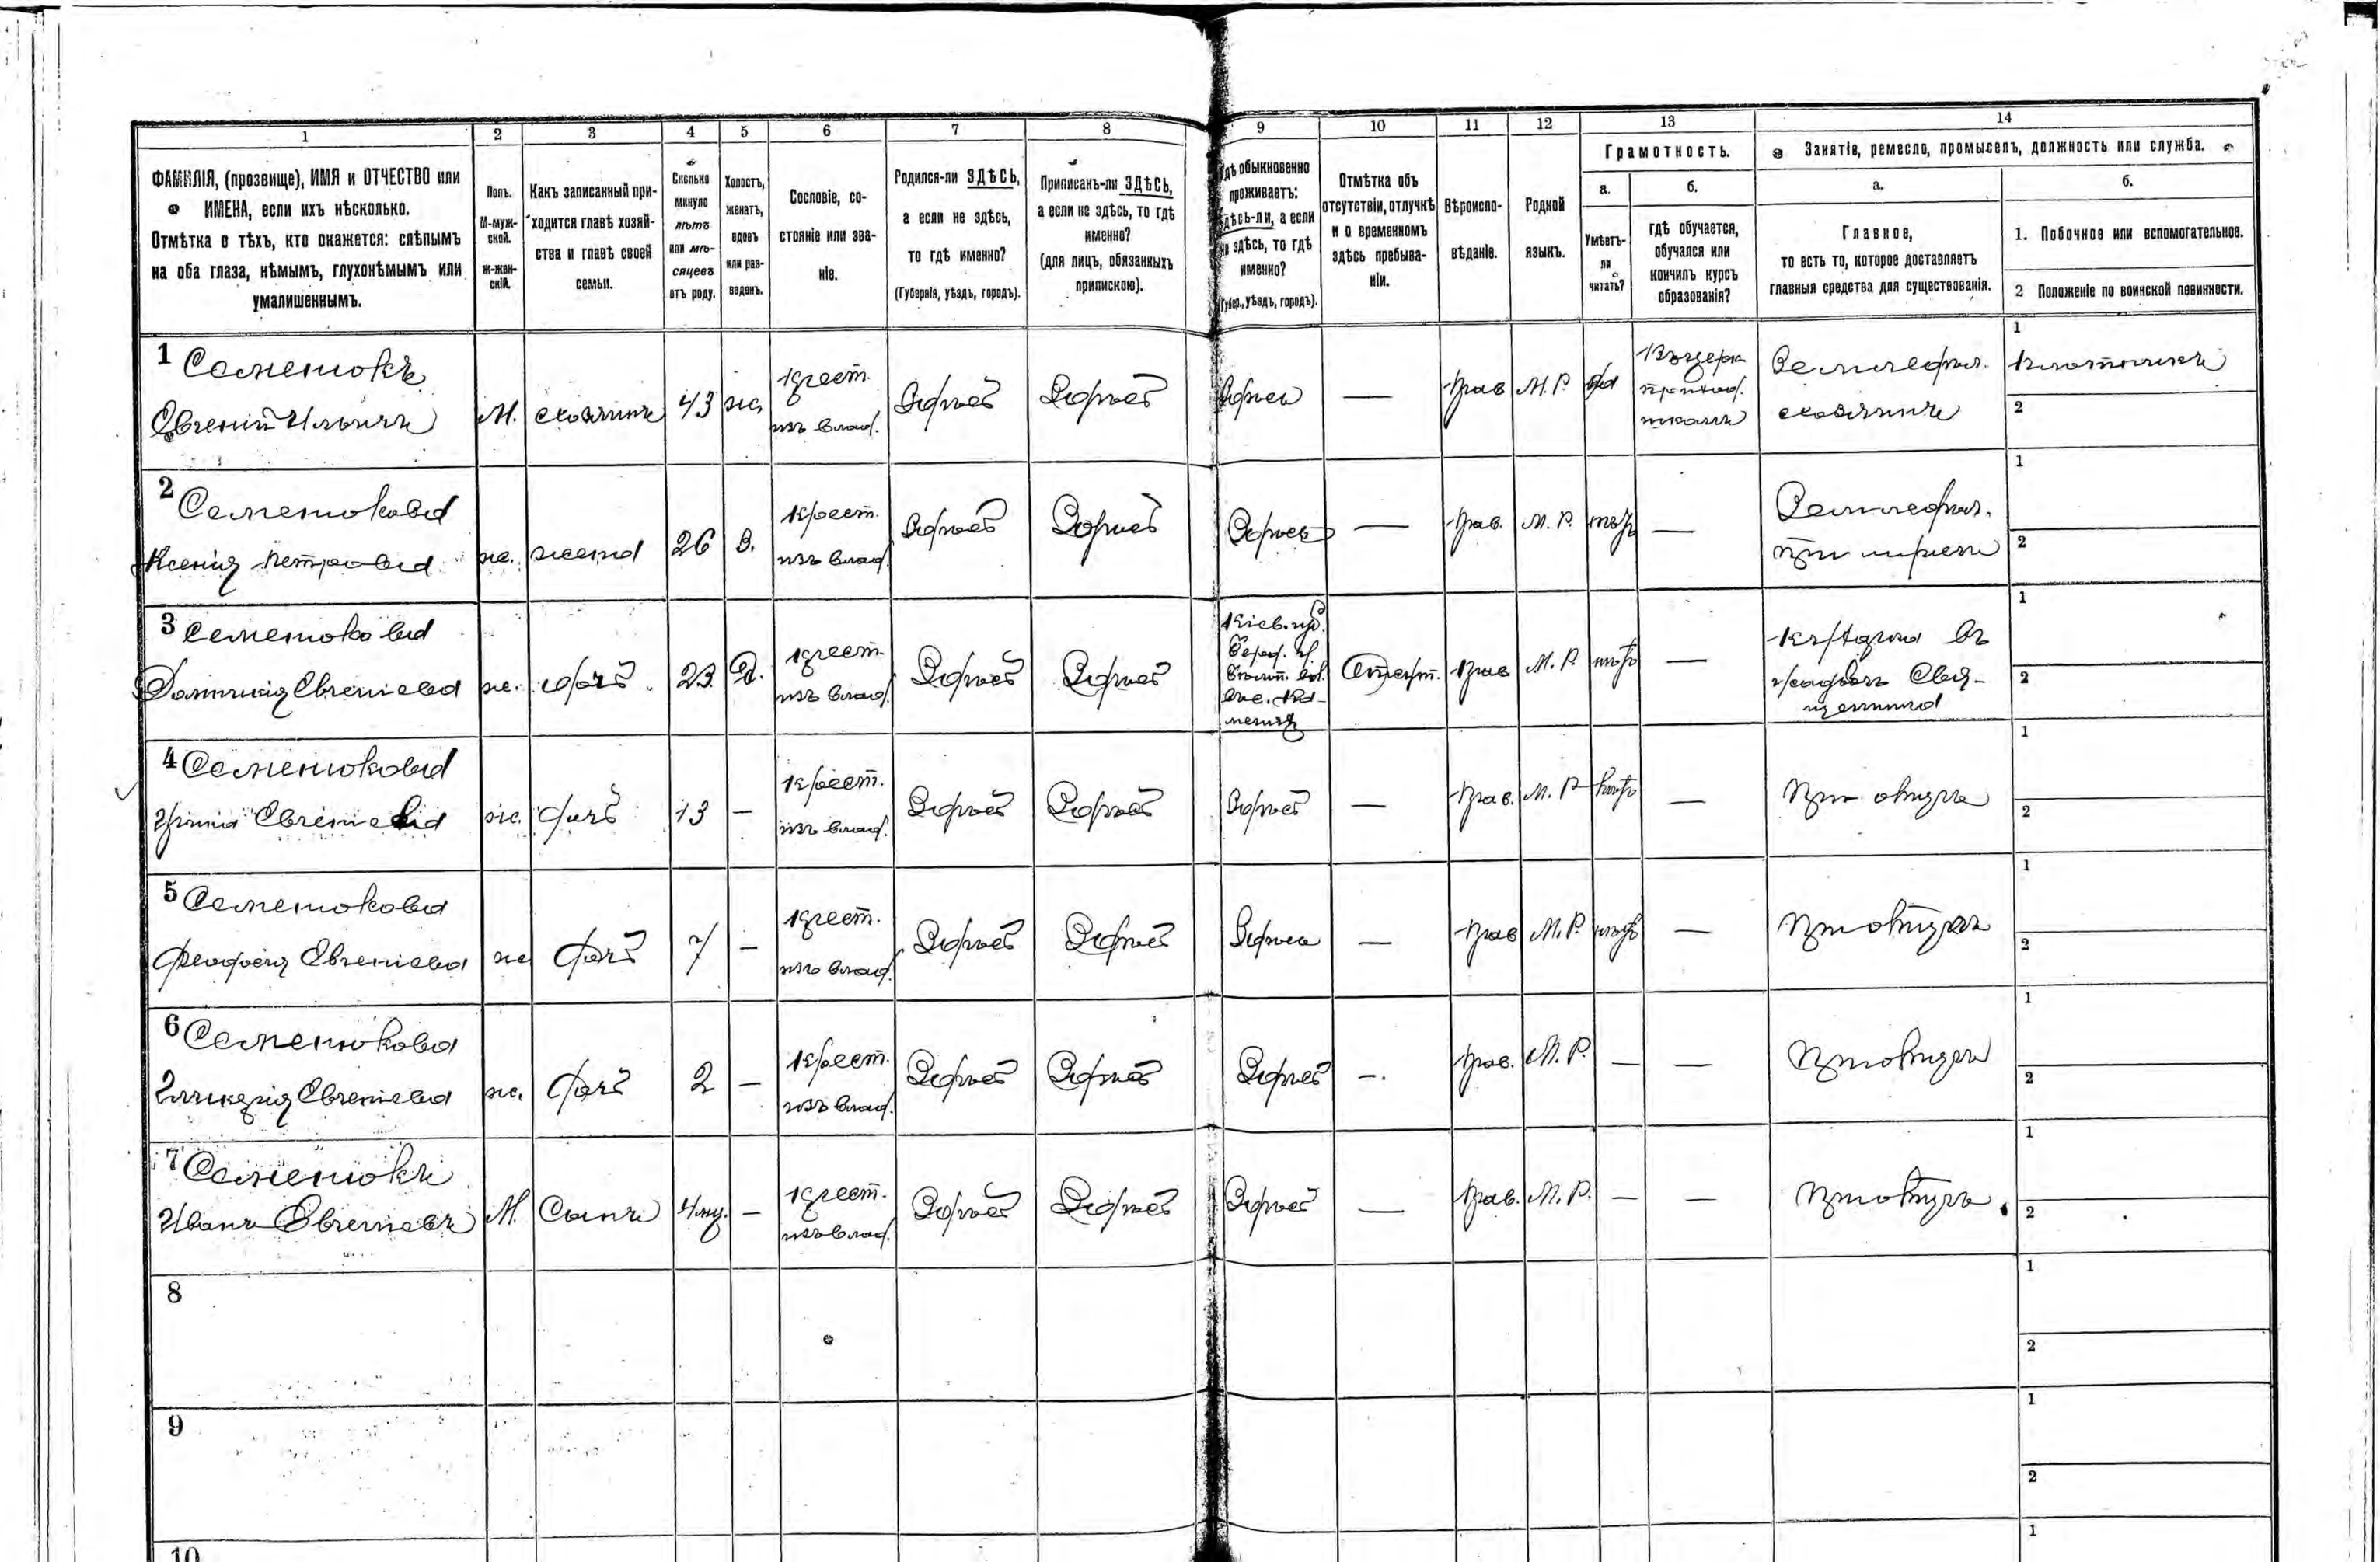 1 2 3 4 5 6 7 8 9 10 11 12 13 14
ФАМИЛІЯ, (прозвище), ИМЯ и ОТЧЕСТВО или
ИМЕНА, если ихъ нѣсколько.
Отмѣтка о тѣхъ, кто окажется: слѣпымъ
на оба глаза, нѣмымъ, глухонѣмымъ или
умалишеннымъ.
Полъ.
М-муж-
ской.
ж-жен-
скій.
Какъ записанный при-
ходится главѣ хозяй-
ства и главѣ своей
семьи.
Сколько
минуло
лѣтъ
или мѣ-
сяцевъ
отъ роду.
Холостъ,
женатъ,
вдовъ
или раз-
веденъ.
Сословіе, со-
стояніе или зва-
ніе.
Родился-ли ЗДѢСЬ,
а если не здѣсь,
то гдѣ именно?
(Губернія, уѣздъ, городъ).
Приписанъ-ли ЗДѢСЬ,
а если не здѣсь, то гдѣ
именно?
(для лицъ, обязанныхъ
припискою).
Гдѣ обыкновенно
проживаетъ:
здѣсь-ли, а если
не здѣсь, то гдѣ
именно?
(Губер., уѣздъ, городъ).
Отмѣтка объ
отсутствіи, отлучкѣ
и о временномъ
здѣсь пребыва-
ніи.
Вѣроиспо-
вѣданіе.
Родной
языкъ.
Грамотность.
а.
Умѣетъ-
ли
читать?
б.
гдѣ обучается,
обучался или
кончилъ курсъ
образованія?
Занятіе, ремесло, промыселъ, должность или служба.
а.
Главное,
то есть то, которое доставляетъ
главныя средства для существованія.
б.
1. Побочное или вспомогательное.
2 Положеніе по воинской повинности.
1 Семенюкъ
Евгеній Ильичъ
М. хозяинъ 43 ж.
крест.
изъ влад.
Здѣсь Здѣсь Здѣсь — прав М. Р. да
въ церк.
приход.
школѣ
Земледѣл.
хозяинъ
1 плотникъ
2
2 Семенюкова
Ксенія Петровна
ж. жена 26 З.
крест.
изъ влад.
Здѣсь Здѣсь Здѣсь — прав. М. Р. нѣтъ —
Земледѣл.
при мужѣ
1
2
3 Семенюкова
Домникія Евгеніева
ж. дочь 23 Д.
крест.
изъ влад.
Здѣсь Здѣсь
Кіев. губ.
прав М. Р. нѣтъ —
1
2
4 Семенюкова
Евгеніева
ж. дочь 13 —
крест.
изъ влад.
Здѣсь Здѣсь Здѣсь — прав. М. Р. нѣтъ —
При отцѣ
1
2
5 Семенюкова
Феодосія Евгеніева
ж дочь 7 —
крест.
изъ влад.
Здѣсь Здѣсь Здѣсь — прав М. Р. нѣтъ —
При отцѣ
1
2
6 Семенюкова
Гликерія Евгеніева
ж. дочь 2 —
крест.
изъ влад.
Здѣсь Здѣсь Здѣсь —. прав. М. Р. — —
При отцѣ
1
2
7 Семенюкъ
Иванъ Евгеніевъ
М. Сынъ 4 мѣ. —
крест.
изъ влад.
Здѣсь Здѣсь Здѣсь — прав. М. Р. — —
При отцѣ
1
2
8
1
2
9
1
2
10
1